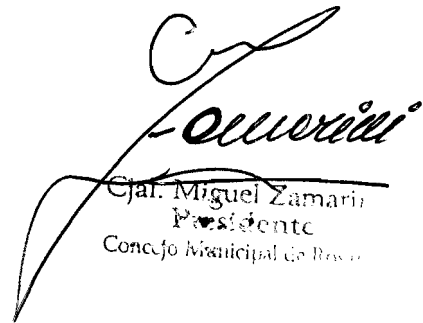 Zamarini
Cjal. Miguel Zamarin
Presidente
Concejo Municipal de